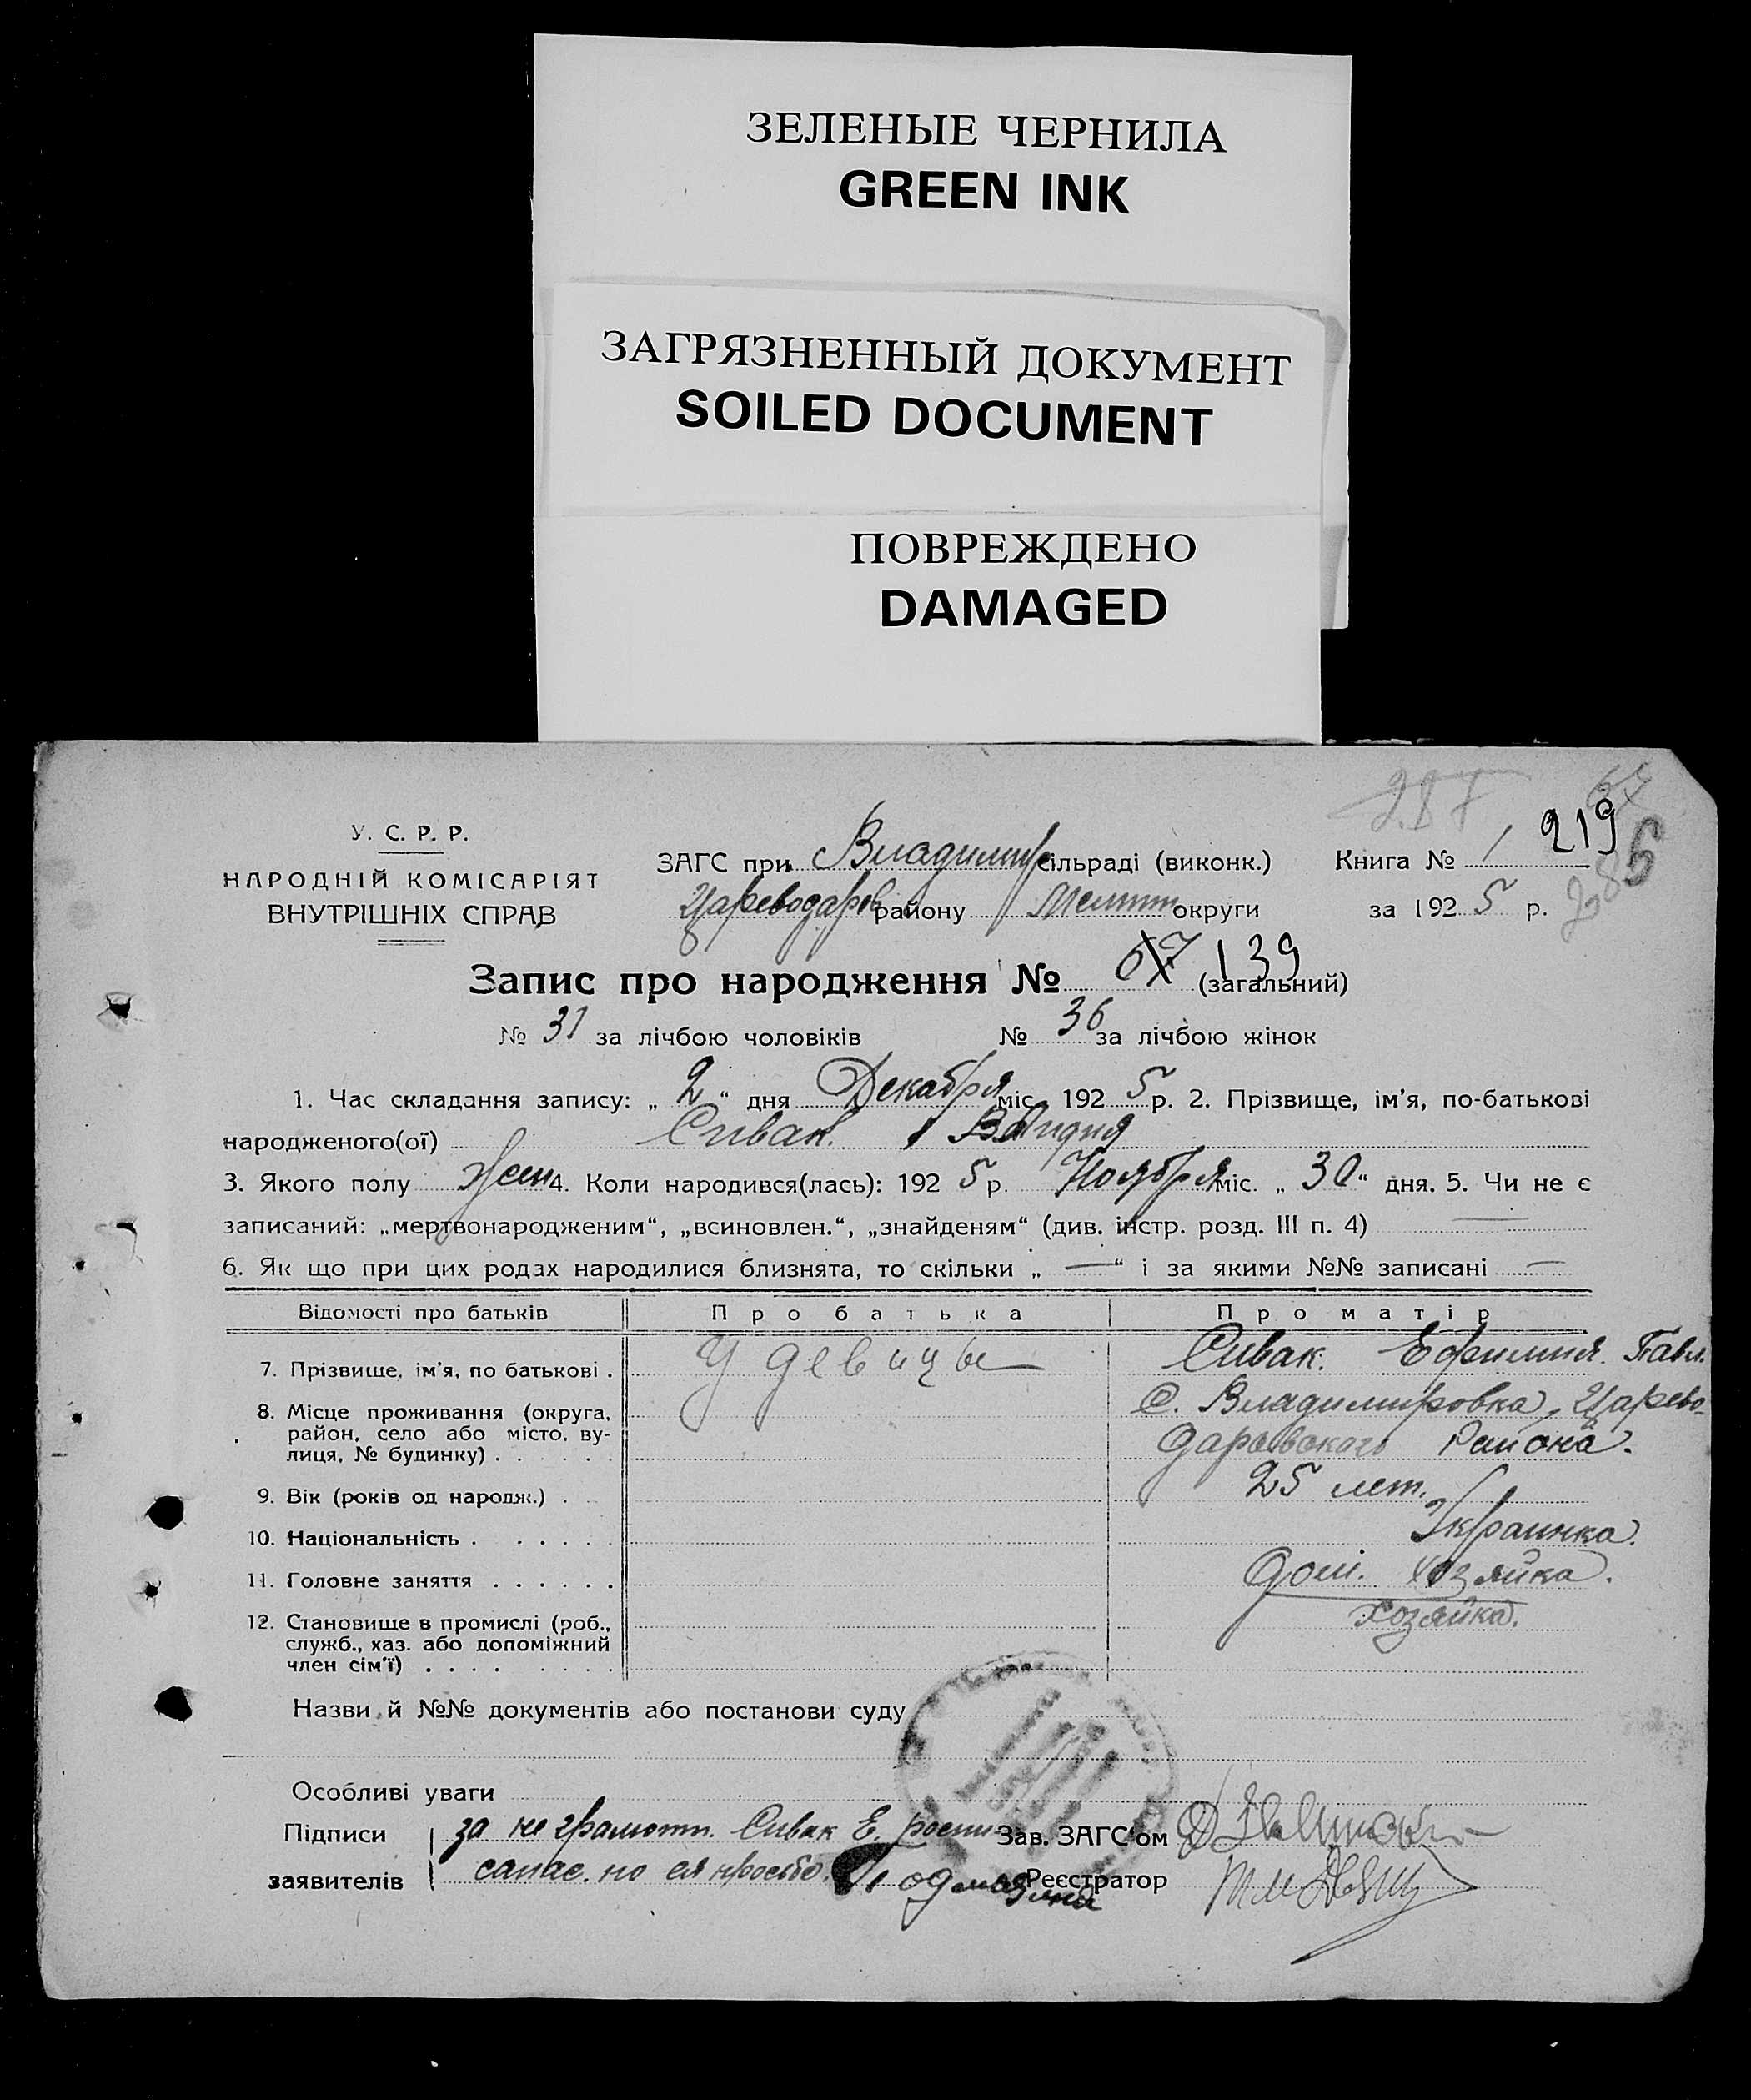 ЗЕЛЕНЫЕ ЧЕРНИЛА
GREEN INK
ЗАГРЯЗНЕННЫЙ ДОКУМЕНТ
SOILED DOCUMENT
ПОВРЕЖДЕНО
DAMAGED
287
219
У. С. Р. Р.
НАРОДНІЙ КОМІСАРІЯТ
ВНУТРІШНІХ СПРАВ
ЗАГС при Владимир сільраді (виконк.) Книга № 1
Цареводаров району Мелит округи за 1925 р.
Запис про народження № 67 139 (загальний)
№ 31 за лічбою чоловіків № 36 за лічбою жінок
1. Час складання запису: „ 2 “ дня Декабря міс. 1925 р. 2. Прізвище, ім’я, по-батькові
народженого(ої) Сивак.
3. Якого полу жен 4. Коли народився(лась): 1925 р. Ноября міс. „ 30 “ дня. 5. Чи не є
записаний: „мертвонародженим“, „всиновлен.“, „знайденям“ (див. інстр. розд. III п. 4) —
6. Як що при цих родах народилися близнята, то скільки „ — “ і за якими №№ записані —
Відомості про батьків Про батька Про матір
7. Прізвище, ім’я, по батькові . У девицы Сивак. Ефимия. Павл.
8. Місце проживання (округа, район, село або місто, вулиця, № будинку) . . . . . . С. Владимировка, Царево-
даровского Района.
9. Вік (років од народж.) . 25 лет.
10. Національність . . . . . . Украинка.
11. Головне заняття . . . . . . дом. хозяйка.
12. Становище в промислі (роб., служб., хаз. або допоміжний член сім’ї) . . . . хозяйка.
Назви й №№ документів або постанови суду
Особливі уваги
Підписи за не грамотн. Сивак Е. Зав. ЗАГС’ом
заявителів по ея просьбе Реєстратор